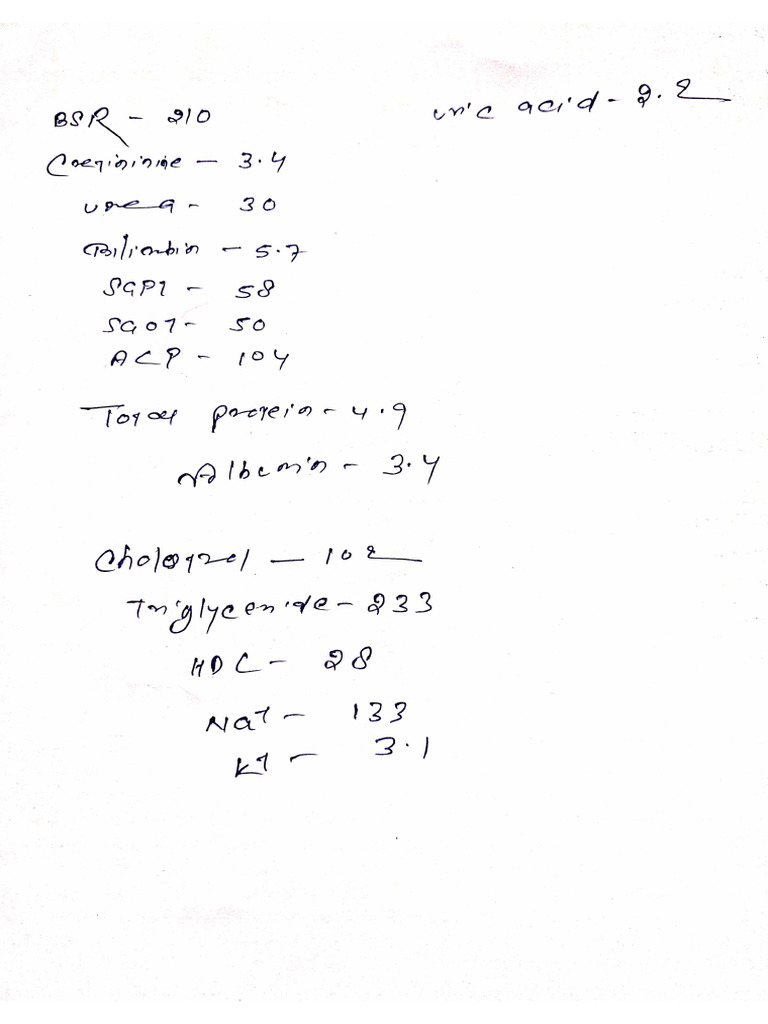 BSR - 210
uric acid - 2.2
Creatinine - 3.4
urea - 30
Bilirubin - 5.7
SGPT - 58
SGOT - 50
ALP - 104
Total protein - 4.9
Albumin - 3.4
Cholestrel - 102
Triglyceride - 233
HDL - 28
Na+ - 133
K+ - 3.1